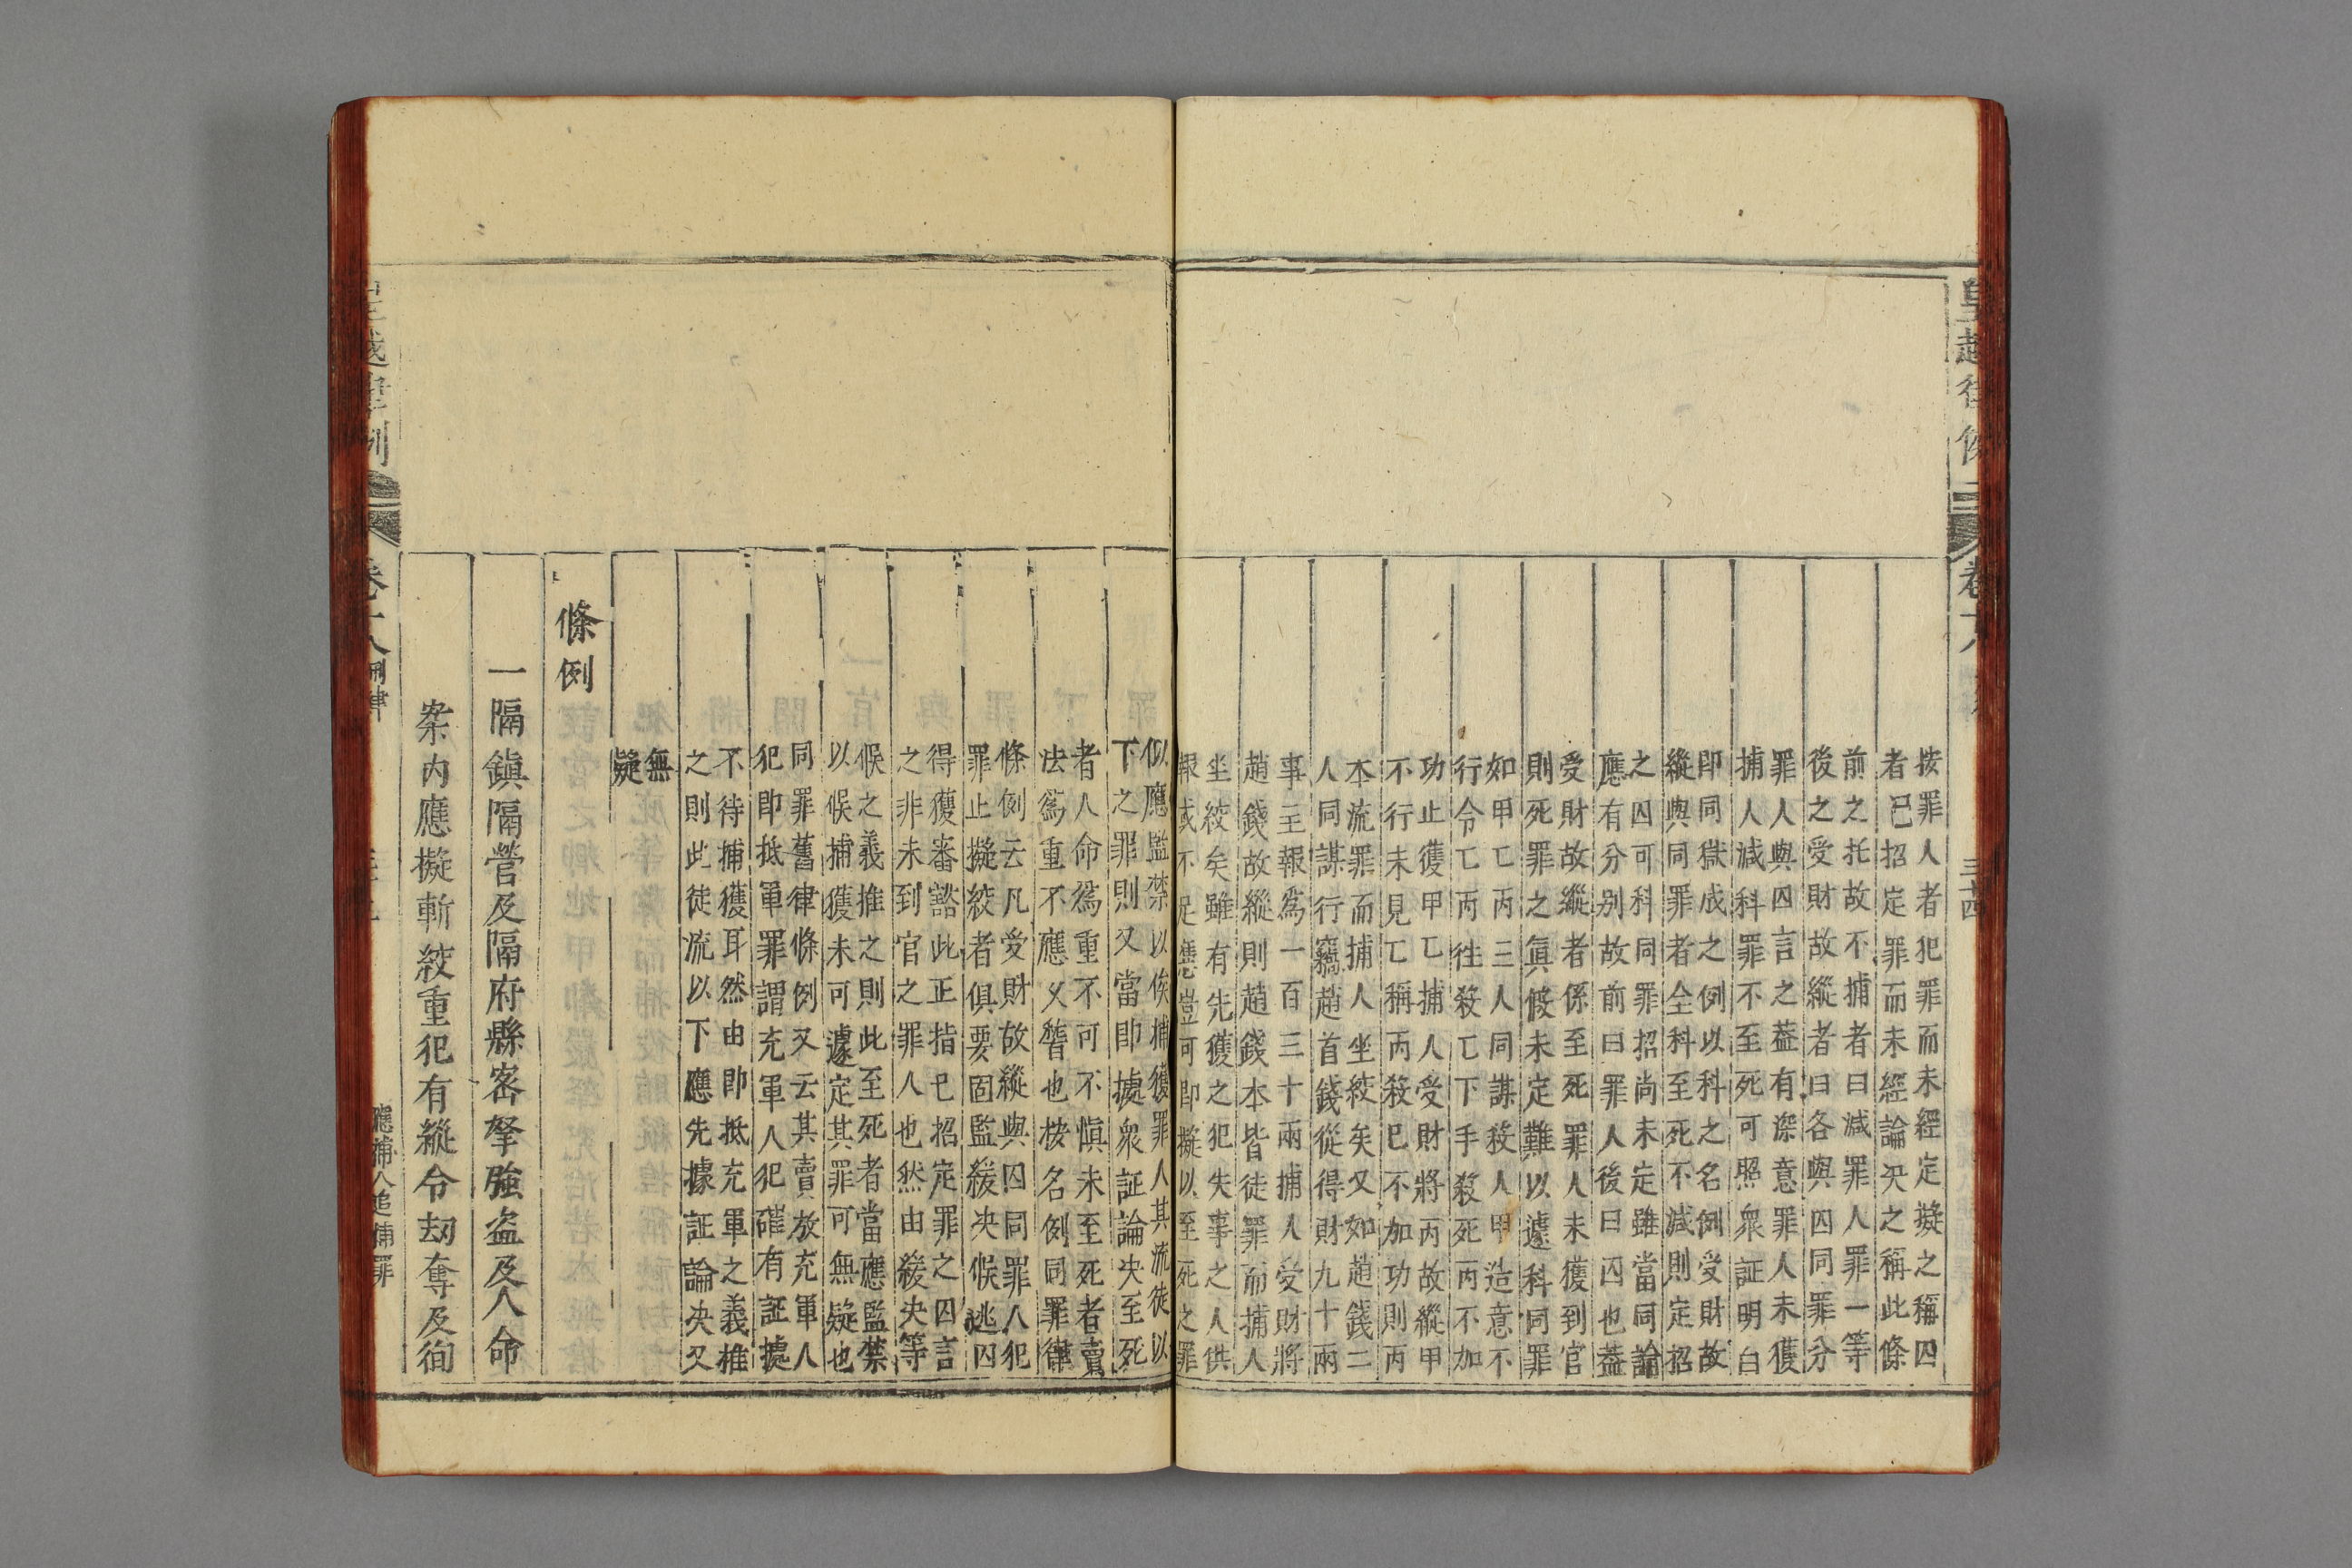 皇越律例
卷十八
三十四
按罪人者犯罪而未經定擬之稱囚
者已招定罪而未經論决之稱此條
前之托故不捕者曰減罪人罪一等
後之受財故縱者曰各與囚同罪分
罪人與囚言之葢有深意罪人未獲
捕人減科罪不至死可照衆証明白
即同獄成之例以科之名例受財故
縱與同罪者全科至死不減則定招
之囚可科同罪招尚未定雖當同論
應有分别故前曰罪人後曰囚也葢
受財故縱者係至死罪人未獲到官
則死罪之眞似未定難以遽科同罪
如甲乙丙三人同謀殺人甲造意不
行令乙丙往殺乙下手殺死丙不加
功止獲甲乙捕人受財將丙故縱甲
不行未見乙稱丙殺已不加功則丙
本流罪而捕人坐絞矣又如趙錢二
人同謀行竊趙首錢從得財九十兩
事主報爲一百三十兩捕人受財將
趙錢故縱則趙錢本皆徒罪而捕人
坐絞矣雖有先獲之犯失事之人供
報或不足慿豈可即擬以至死之罪
似應監禁以俟捕獲罪人其流徒以
下之罪則又當即據衆証論决至死
者人命爲重不可不愼未至死者賣
法爲重不應乂暬也按名例同罪律
條例云凡受財故縱與囚同罪人犯
罪止擬絞者俱要固監緩决候逃囚
得獲審豁此正指已招定罪之囚言
之非未到官之罪人也然由緩决等
候之義推之則此至死者當應監禁
以候捕獲未可遽定其罪可無疑也
同罪舊律條例又云其賣放充軍人
犯即抵軍罪謂充軍人犯確有証據
不待捕獲耳然由即抵充軍之義推
之則此徒流以下應先據証論决又
無
疑
條例
一隔鎭隔營及隔府縣密拏強盗及人命
案内應擬斬絞重犯有縱令刧奪及徇
皇越律例
卷十八
刑律
應捕人追捕罪